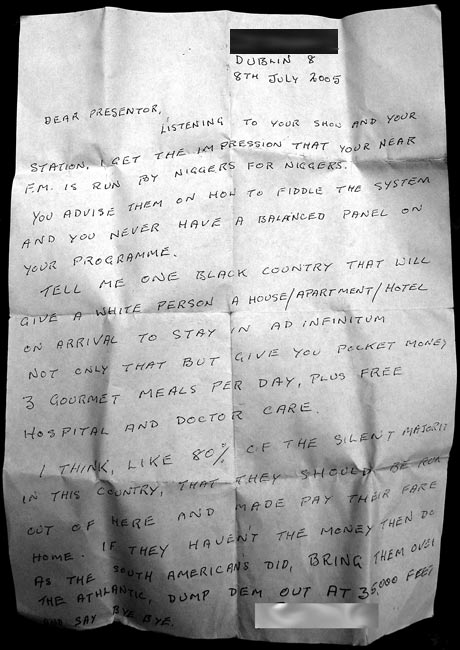 DUBLIN 8
8TH JULY 2005
DEAR PRESENTOR,
LISTENING TO YOUR SHOW AND YOUR
STATION, I GET THE IMPRESSION THAT YOUR NEAR
F.M. IS RUN BY NIGGERS FOR NIGGERS.
YOU ADVISE THEM ON HOW TO FIDDLE THE SYSTEM
AND YOU NEVER HAVE A BALANCED PANEL ON
YOUR PROGRAMME.
TELL ME ONE BLACK COUNTRY THAT WILL
GIVE A WHITE PERSON A HOUSE/APARTMENT/HOTEL
ON ARRIVAL TO STAY IN AD INFINITUM
NOT ONLY THAT BUT GIVE YOU POCKET MONEY
3 GOURMET MEALS PER DAY, PLUS FREE
HOSPITAL AND DOCTOR CARE.
I THINK, LIKE 80% OF THE SILENT MAJORIT
IN THIS COUNTRY, THAT THEY SHOULD BE RUN
OUT OF HERE AND MADE PAY THEIR FARE
HOME. IF THEY HAVEN'T THE MONEY THEN DO
AS THE SOUTH AMERICANS DID, BRING THEM OVER
THE ATHLANTIC, DUMP DEM OUT AT 35,000 FEET
AND SAY BYE BYE.